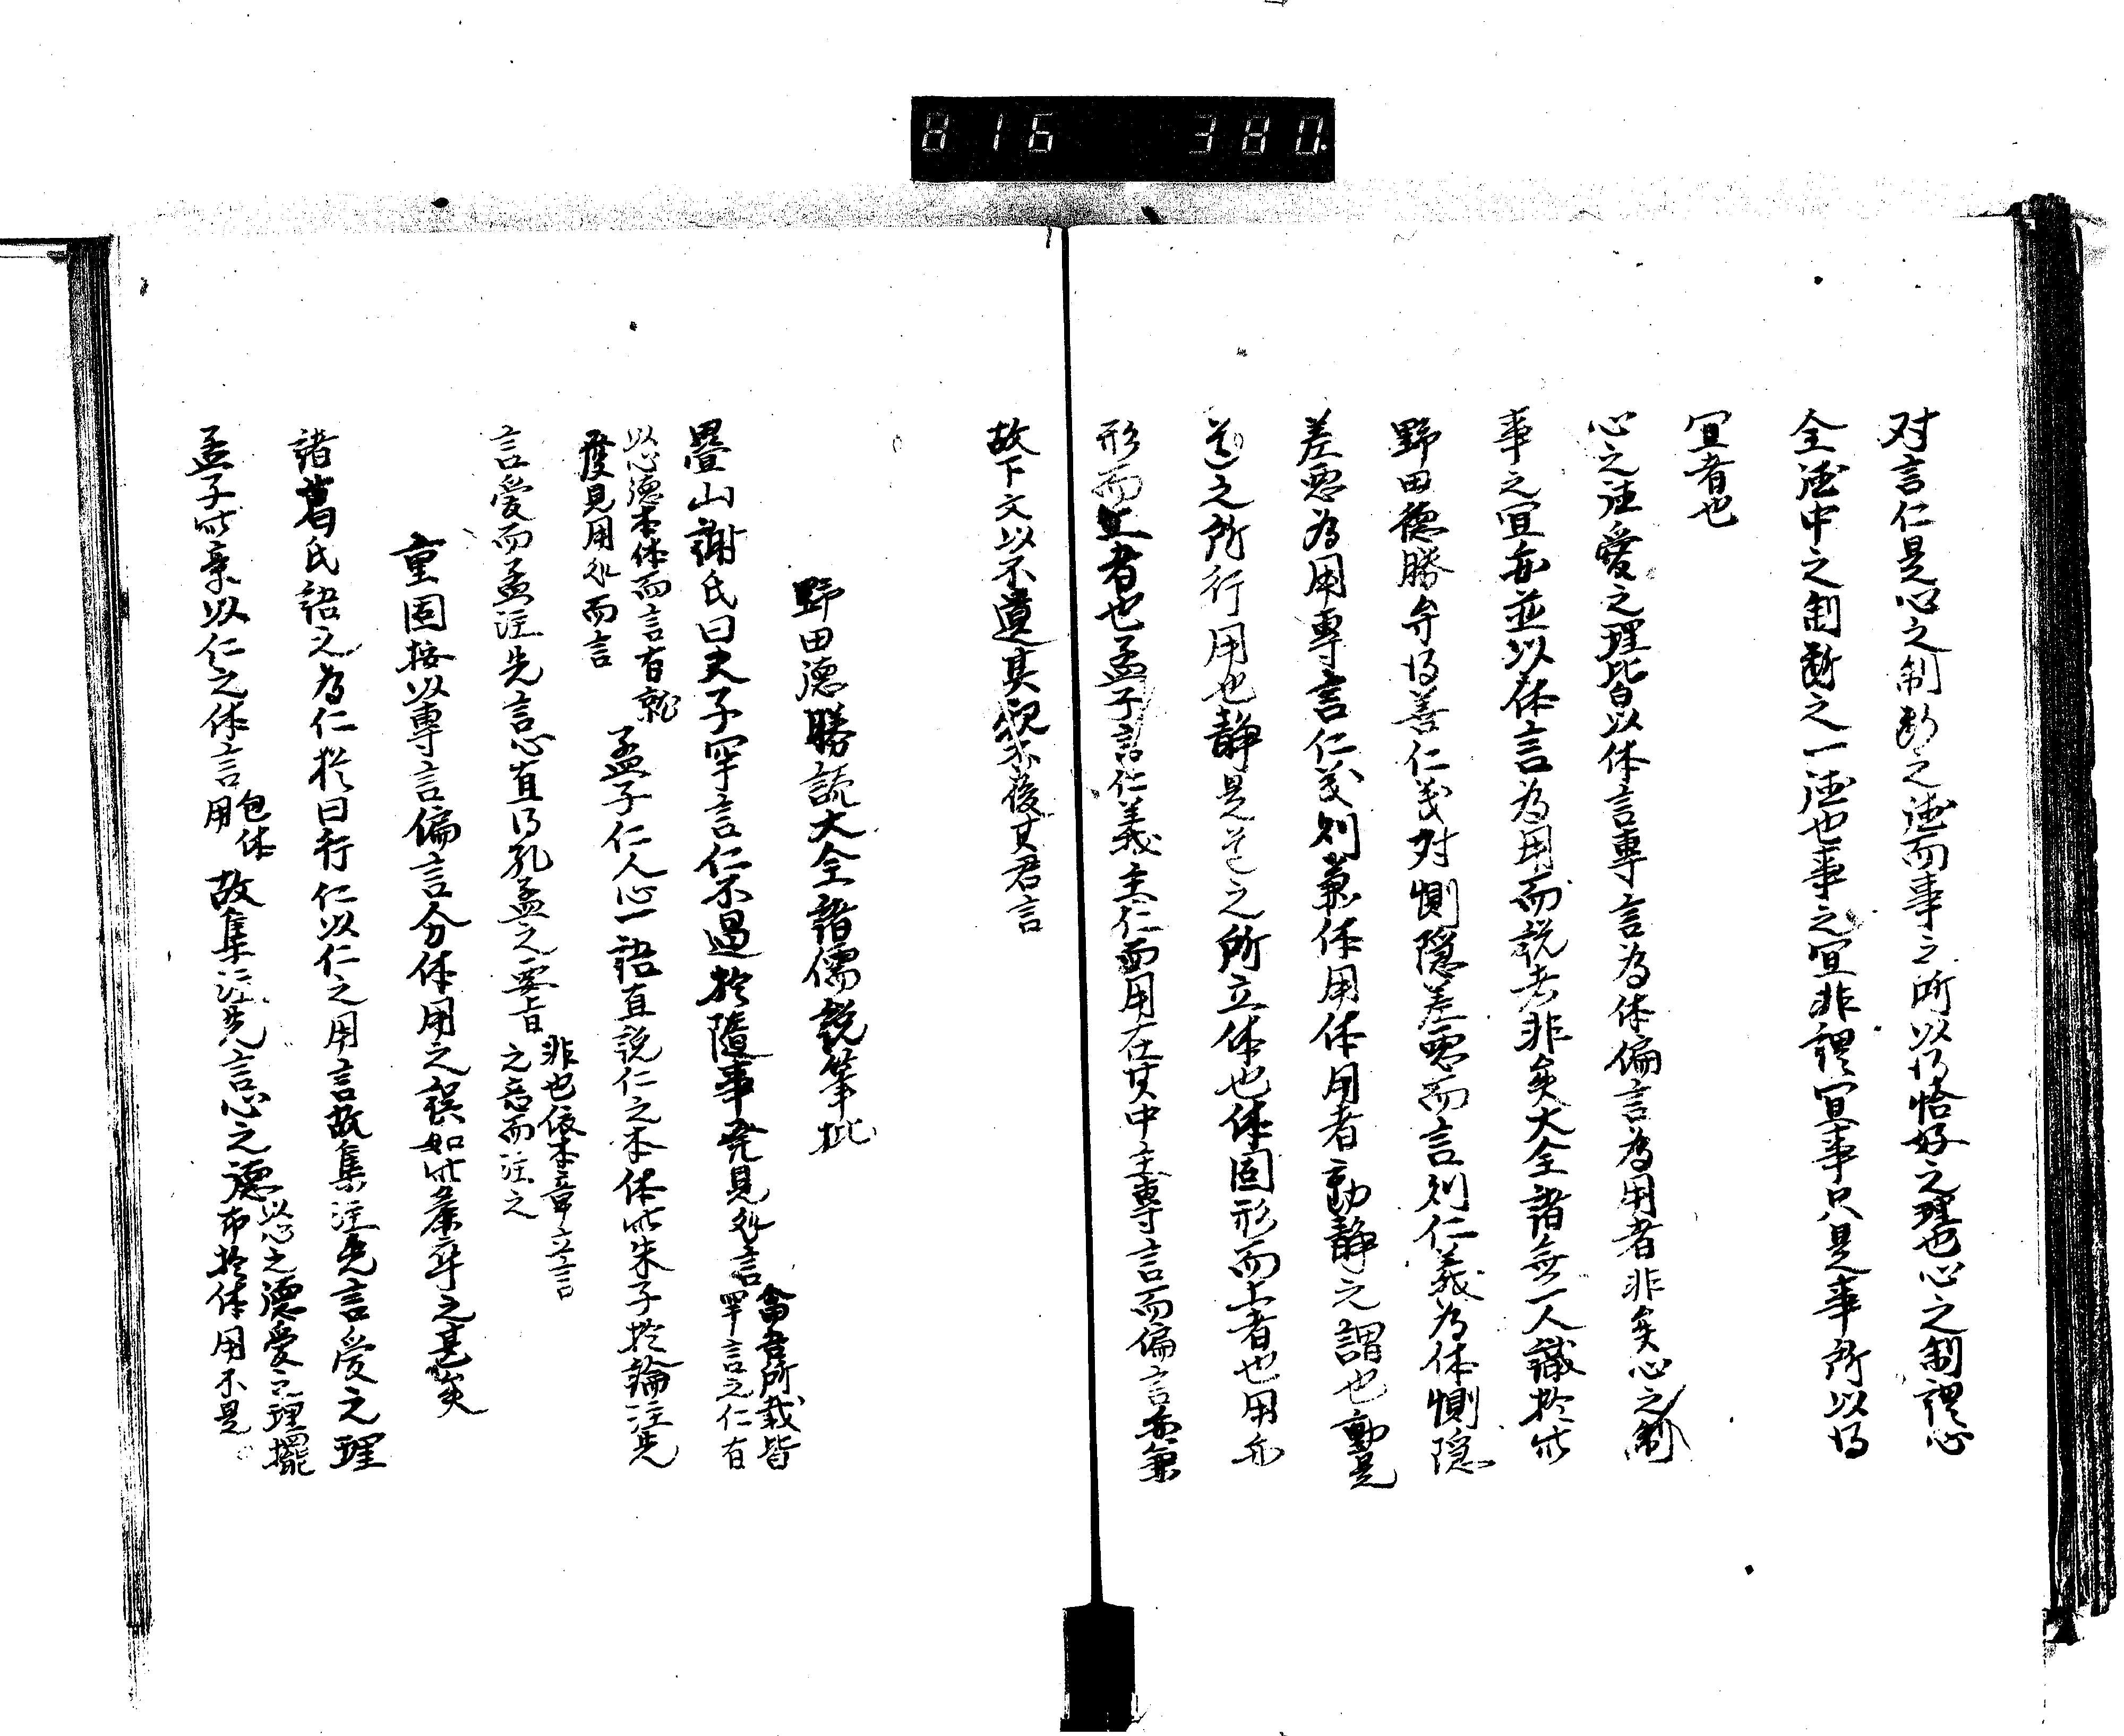 816 380
对言仁是心之制断之徳而事之所以得恰好之理也心之制謂心
全徳中之制断之一徳也事之宜非謂宜事只是事所以得
宜者也
心之徳愛之理皆以体言専言為体偏言為用者非矣心之制
事之宜亦並以体言為用而説者非矣大全諸無一人識於此
野田徳勝弁得善仁義対惻隠羞悪而言則仁義為体惻隠
羞悪為用専言仁義則兼体用体用者動静之謂也動是
道之所行用也静是道之所立体也体固形而上者也用亦
形而上者也孟子言仁義主仁而用在其中主専言而偏言亦兼
故下文以不遺其親不後其君言
野田徳勝読大全諸儒説筆批
疊山謝氏曰夫子罕言仁不過於随事発見処言
魯吾所載皆
罕言之仁有
以心徳本体而言有就
発見用処而言
孟子仁人心一語直説仁之本体此朱子於論注先
言愛而孟注先言心直得孔孟之要旨
非也依本章立言
之意而注之
重固按以専言偏言分体用之誤如此麁率之甚矣
諸葛氏語之為仁於曰行仁以仁之用言故集注先言愛之理
孟子此章以仁之体言
包体
用
故集注先言心之徳
以心之徳愛之理擺
布於体用不是